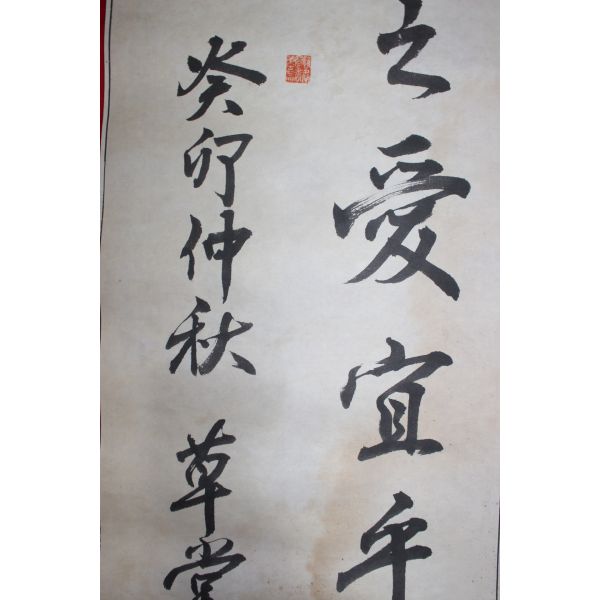 之愛宜乎
癸卯仲秋 草堂